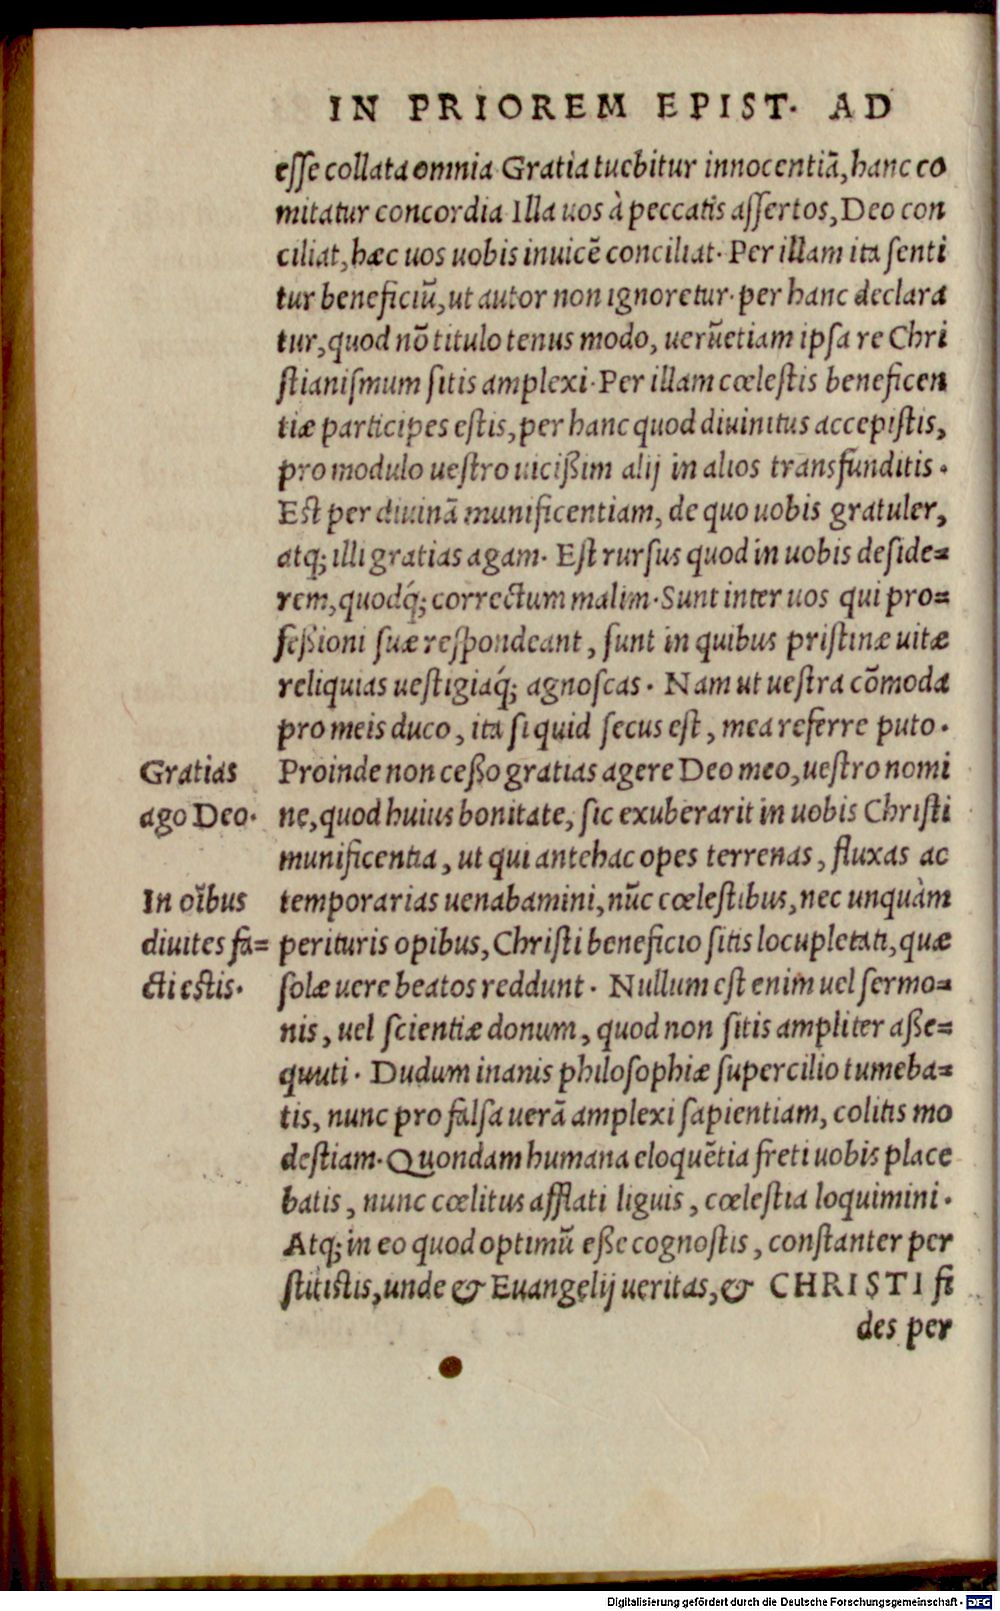 IN PRIOREM EPIST. AD
esse collata omnia Gratia tuebitur innocentiā, hanc co
mitatur concordia Illa uos à peccatis assertos, Deo con
ciliat, hæc uos uobis inuicē conciliat. Per illam ita senti
tur beneficiū, ut autor non ignoretur. per hanc declara
tur, quod nō titulo tenus modo, uerūetiam ipsa re Chri
stianismum sitis amplexi. Per illam cœlestis beneficen
tiæ participes estis, per hanc quod diuinitus accepistis,
pro modulo uestro uicißim alij in alios transfunditis.
Est per diuinā munificentiam, de quo uobis gratuler,
atq; illi gratias agam. Est rursus quod in uobis deside=
rem, quodq́; correctum malim. Sunt inter uos qui pro=
feßioni suæ respondeant, sunt in quibus pristinæ uitæ
reliquias uestigiaq́; agnoscas. Nam ut uestra cōmoda
pro meis duco, ita si quid secus est, mea referre puto.
Gratias Proinde non ceßo gratias agere Deo meo, uestro nomi
ago Deo. ne, quod huius bonitate, sic exuberarit in uobis Christi
munificentia, ut qui antehac opes terrenas, fluxas ac
In oībus temporarias uenabamini, nūc cœlestibus, nec unquàm
diuites fa= perituris opibus, Christi beneficio sitis locupletati, quæ
cti estis. solæ uere beatos reddunt. Nullum est enim uel sermo=
nis, uel scientiæ donum, quod non sitis ampliter aße=
quuti. Dudum inanis philosophiæ supercilio tumeba=
tis, nunc pro falsa uerā amplexi sapientiam, colitis mo
destiam. Quondam humana eloquētia freti uobis place
batis, nunc cœlitus afflati liguis, cœlestia loquimini.
Atq; in eo quod optimū eße cognostis, constanter per
stitistis, unde & Euangelij ueritas, & CHRISTI fi
des per
Digitalisierung gefördert durch die Deutsche Forschungsgemeinschaft - DFG